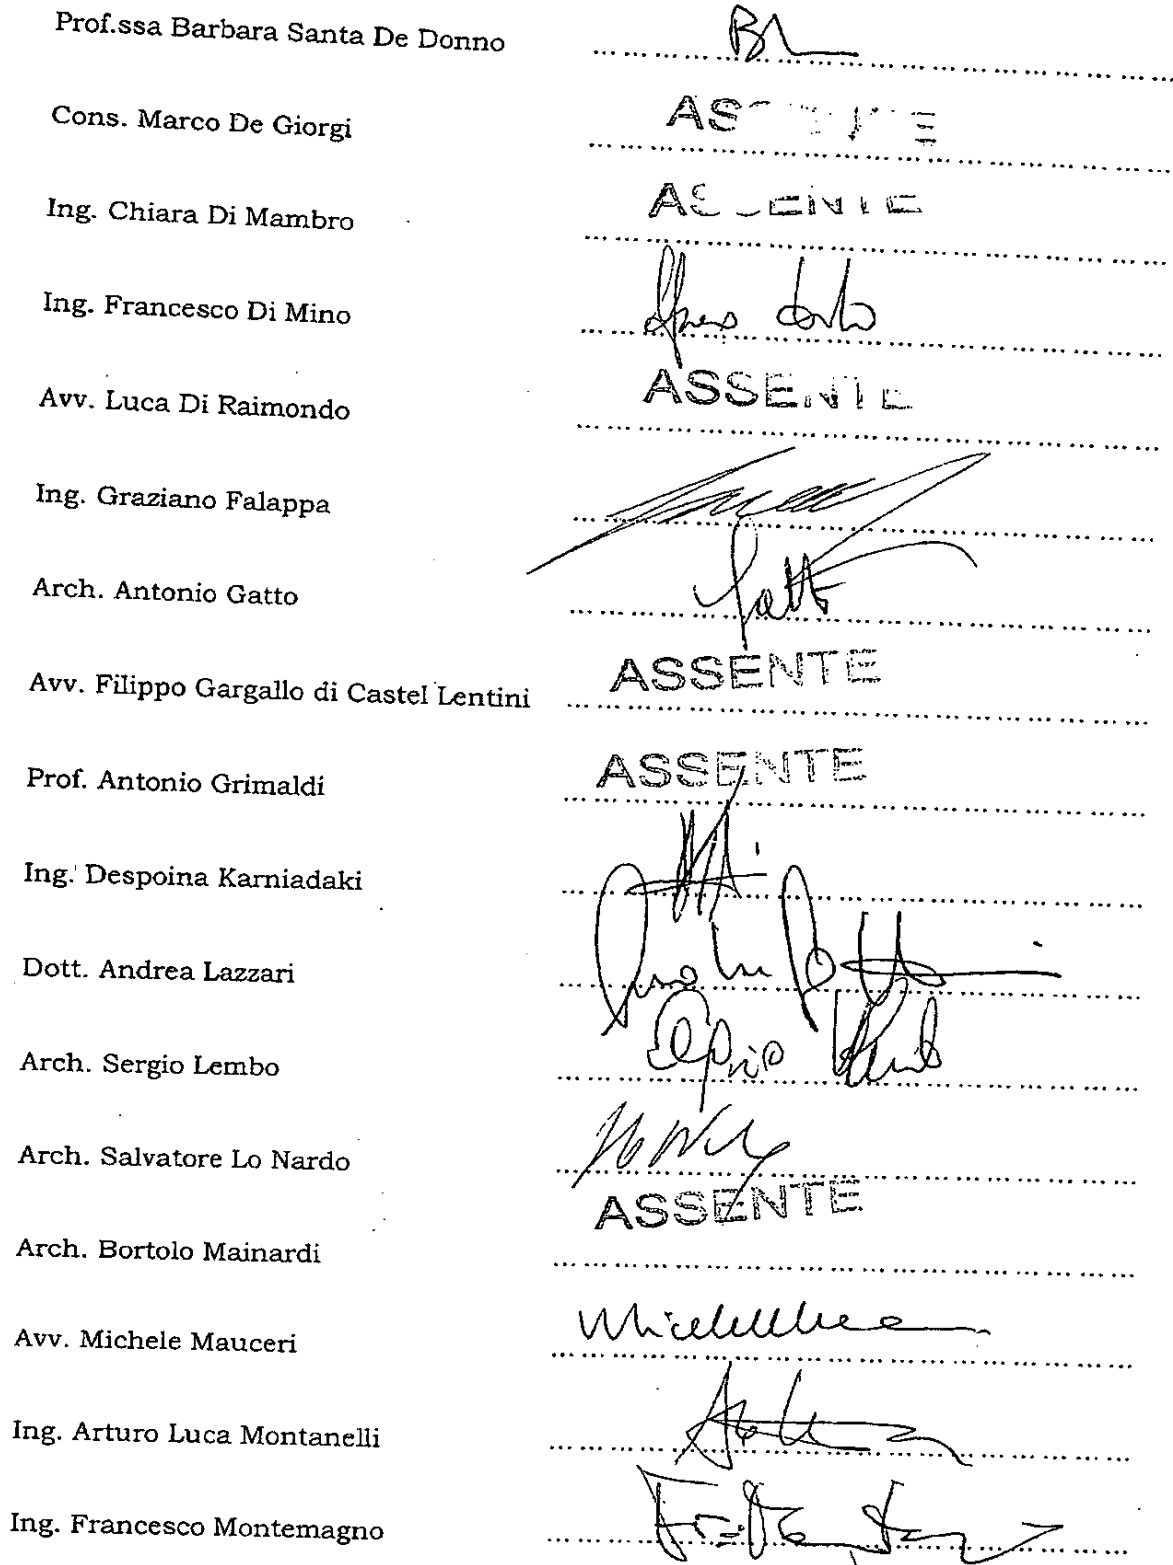 Prof.ssa Barbara Santa De Donno
Cons. Marco De Giorgi ASSENTE
Ing. Chiara Di Mambro ASSENTE
Ing. Francesco Di Mino
Avv. Luca Di Raimondo ASSENTE
Ing. Graziano Falappa
Arch. Antonio Gatto Gatto
Avv. Filippo Gargallo di Castel Lentini ASSENTE
Prof. Antonio Grimaldi ASSENTE
Ing. Despoina Karniadaki
Dott. Andrea Lazzari
Arch. Sergio Lembo
Arch. Salvatore Lo Nardo
Arch. Bortolo Mainardi ASSENTE
Avv. Michele Mauceri
Ing. Arturo Luca Montanelli
Ing. Francesco Montemagno